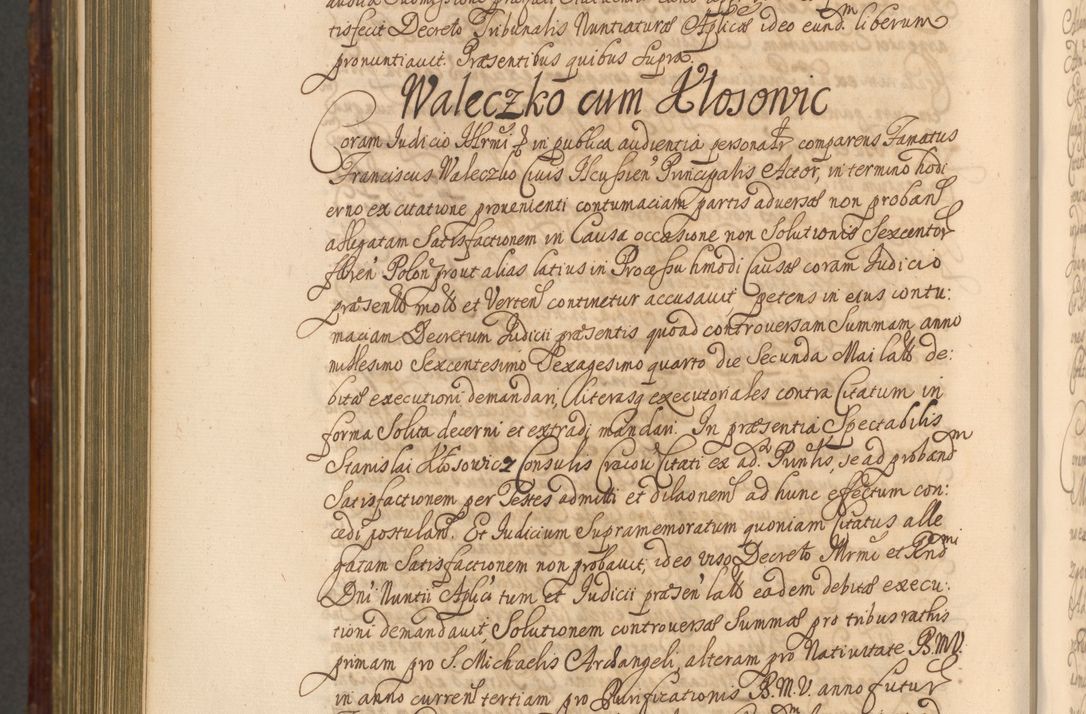 tisfecit Decreto Tribunalis Nuntiaturæ Aplicæ ideo eund.m liberum
pronuntiavit. Præsentibus quibus supra.
Waleczko cum Kłosowic
Coram Judicio Illrmi &c in publica audientia personalr comparens Famatus
Franciscus Waleczko Civis Ilcussien Principalis Actor, in termino hodi
erno ex citatione provenienti contumaciam partis adversæ non proban
allegatam Satisfactionem in Causa occasione non Solutionis Sexcentor
floren Polon prout alias latius in Processu hmodi Causæ coram Judicio
præsenti moto et Verten continetur accusavit petens in eius contu:
maciam Decretum Judicii præsentis quoad controversam Summam anno
millesimo Sexcentesimo Sexagesimo quarto die Secunda Mai lato de:
bitæ executioni demandari, Literasq executoriales contra Citatum in
forma Solita decerni et extradi mandari. In præsentia Spectabilis
Stanislai Kłosowicz Consulis Cracov Citati ex adº Punlis, se ad proband.m
Satisfactionem per Testes admitti et dilaonem ad hunc effectum con:
cedi postulans. Et Judicium Supramemoratum quoniam Citatus alle
gatam Satisfactionem non probavit, ideo viso Decreto Illrmi et Rnd.mi
Dni Nuntii Aplici tum et Judicii præsen lato eadem debitæ execu:
tioni demandavit, Solutionem controversæ Summæ pro tribus rathis
primam pro S. Michaelis Archangeli, alteram pro Nativitate B.M.V.
in anno curren tertiam pro Purificationis B.M.V. anno futur